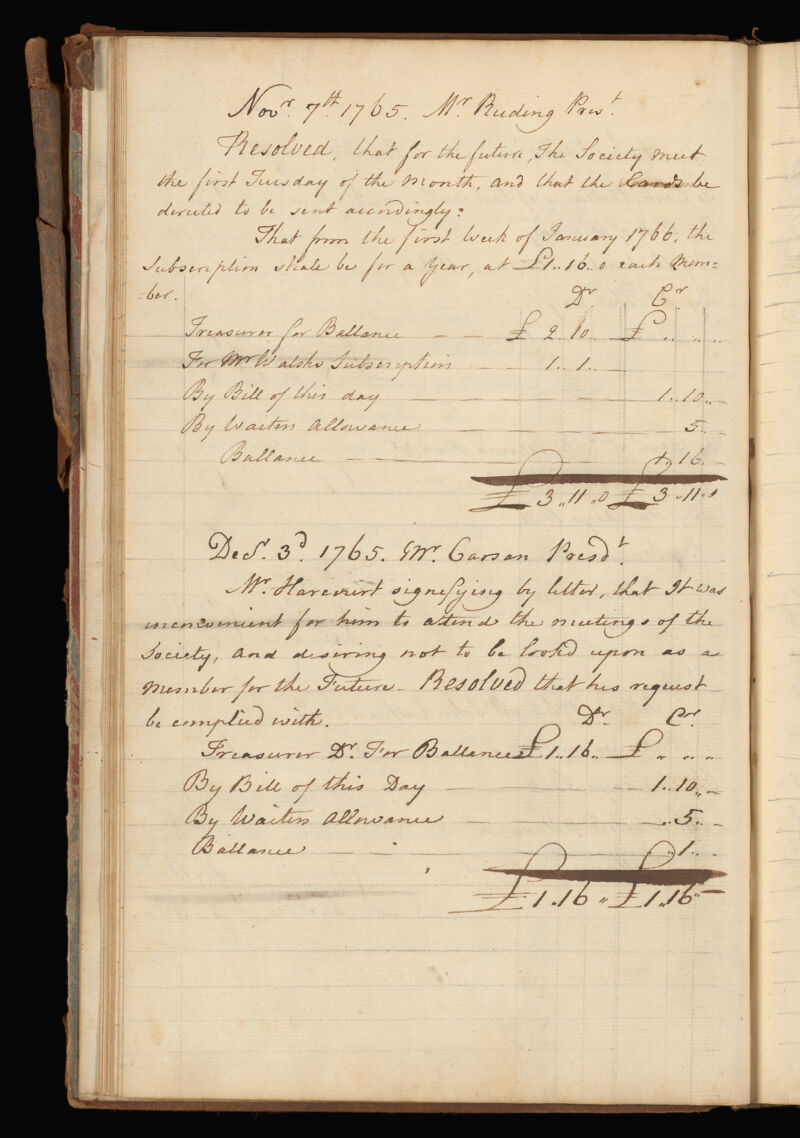 Novr. 7th. 1765. Mr. Ruding Prest.
Resolved, that for the future, The Society meet
the first Tuesday of the Month, and that the Cards be
directed to be sent accordingly:
That from the first Week of January 1766, the
Subscription shall be for a Year, at £1..16..0 each Mem=
=ber.
Dr. Cr.
Treasurer for Ballance — — £ 2..10.. £ .. .. ..
For Mr Walshs Subscription — — 1..1..—
By Bill of this day — — 1..10..—
By Waiters Allowance — — 5..—
Ballance — — 1..16..—
£3..11..0 £3..11..0
Decr. 3d. 1765. Mr. Carsan Presdt.
Mr. Harcourt signefying by letter, that It was
inconvenient for him to attend the meetings of the
Society, and desiring not to be look'd upon as a
Member for the Future – Resolved that his request
be complied with. Dr. Cr.
Treasurer Dr. For Ballance £1..16.. £ .. .. ..
By Bill of this Day — — 1..10..—
By Waiters Allowance — — ..5..—
Ballance — — ..1..—
£1..16.. £1..16..—